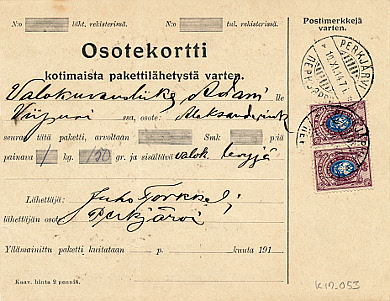 N:o läht. rekisterissä. N:o tul. rekisterissä.
Postimerkkejä
varten.
Osotekortti
kotimaista pakettilähetystä varten.
Valokuvausliike Adami lle
Viipuri ssa, osote: Aleksanderink
seuraa tätä paketti, arvoltaan Smk p:iä
painava kg. gr ja sisältävä valok. levyjä
Lähettäjä: Juho Torkkeli
lähettäjän osote: Perkjärvi
Yllämainittu paketti kuitataan p. kuuta 191
Kaav. hinta 2 penniä.
PERKJÄRVI
K12-053